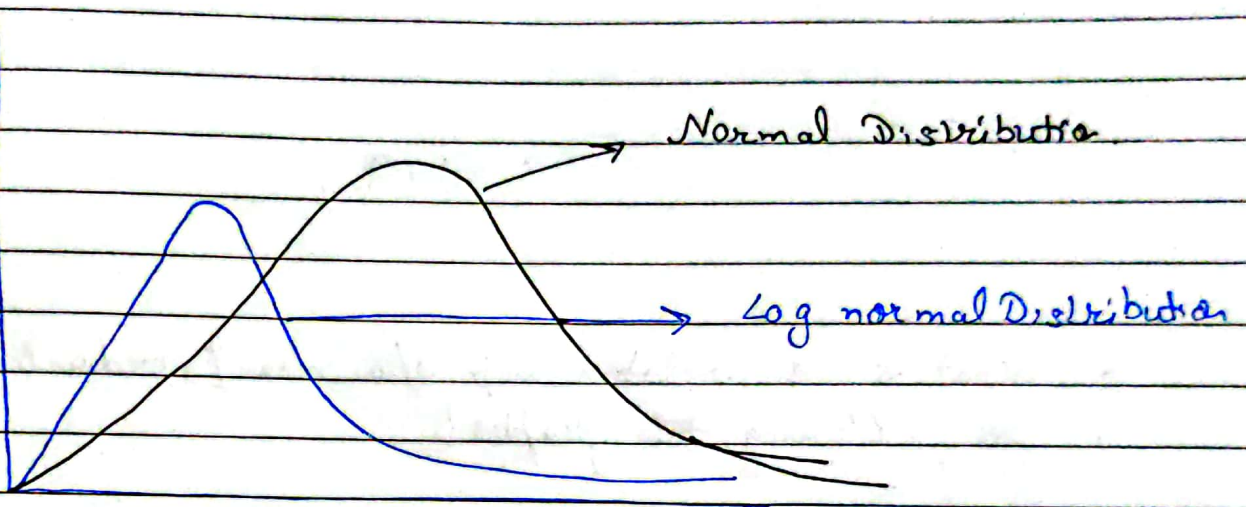 Normal Distributio
Log normal Distribution